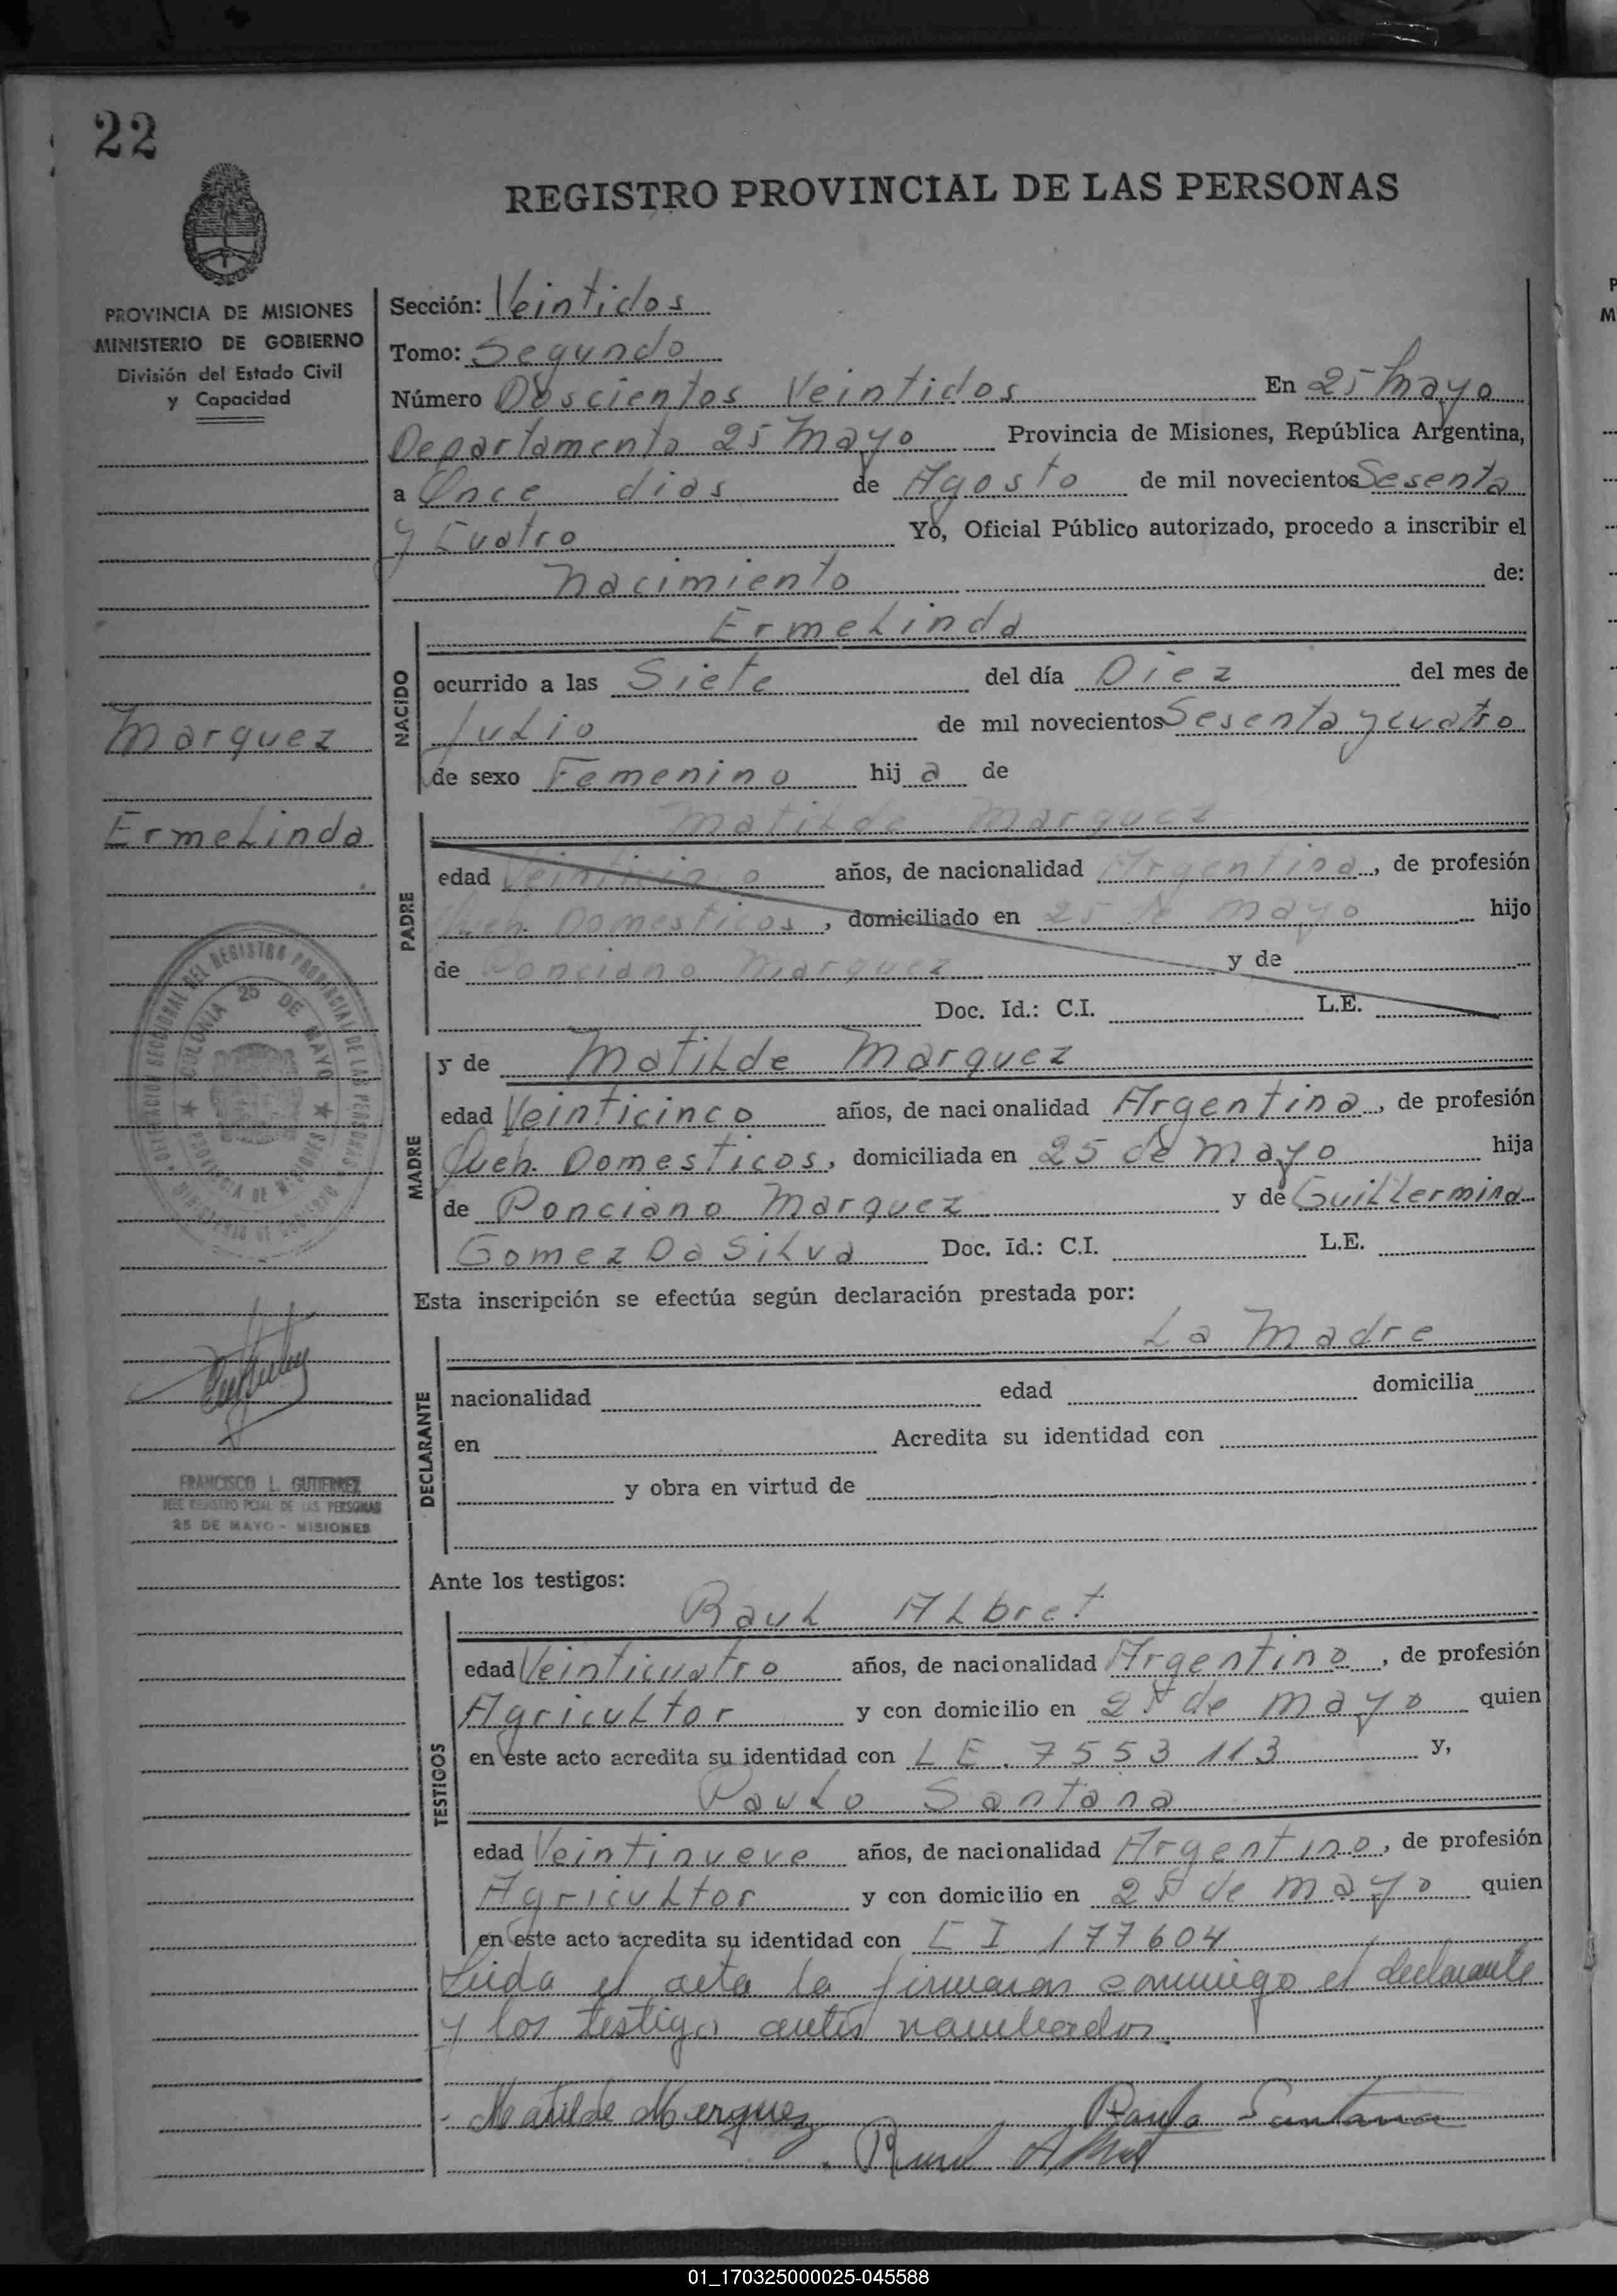 22
REGISTRO PROVINCIAL DE LAS PERSONAS
PROVINCIA DE MISIONES
MINISTERIO DE GOBIERNO
División del Estado Civil
y Capacidad
Marquez
Ermelinda
DELEGACION SECCIONAL DEL REGISTRO PROVINCIAL DE LAS PERSONAS
COLONIA 25 DE MAYO
PROVINCIA DE MISIONES
MINISTERIO DE GOBIERNO
FRANCISCO L. GUTIERREZ
JEFE REGISTRO PCIAL DE LAS PERSONAS
25 DE MAYO - MISIONES
Sección: Veintidos
Tomo: Segundo
Número Doscientos Veintidos En 25 Mayo
Departamento 25 Mayo Provincia de Misiones, República Argentina,
a Once dias de Agosto de mil novecientos Sesenta
y Cuatro Yo, Oficial Público autorizado, procedo a inscribir el
Nacimiento de:
NACIDO
Ermelinda
ocurrido a las Siete del día Diez del mes de
Julio de mil novecientos Sesenta y cuatro
de sexo Femenino hij a de
PADRE
Matilde Marquez
edad Veinticinco años, de nacionalidad Argentina, de profesión
Queh. Domesticos, domiciliado en 25 de Mayo hijo
de Ponciano Marquez y de
Doc. Id.: C.I. L.E.
MADRE
y de Matilde Marquez
edad Veinticinco años, de nacionalidad Argentina, de profesión
Queh. Domesticos, domiciliada en 25 de Mayo hija
de Ponciano Marquez y de Guillermina
Gomez Da Silva Doc. Id.: C.I. L.E.
Esta inscripción se efectúa según declaración prestada por:
DECLARANTE
La Madre
nacionalidad edad domicilia
en Acredita su identidad con
y obra en virtud de
Ante los testigos:
TESTIGOS
Raul Albret
edad Veinticuatro años, de nacionalidad Argentino, de profesión
Agricultor y con domicilio en 25 de Mayo quien
en este acto acredita su identidad con L E. 7553 113 y,
Paulo Santana
edad Veintinueve años, de nacionalidad Argentino, de profesión
Agricultor y con domicilio en 25 de Mayo quien
en este acto acredita su identidad con C I 177604
Leida el acta la firmaron conmigo el declarante
y los testigo antes nombrados.
Matilde Merquez Paulo Santana
Raul
01_170325000025-045588